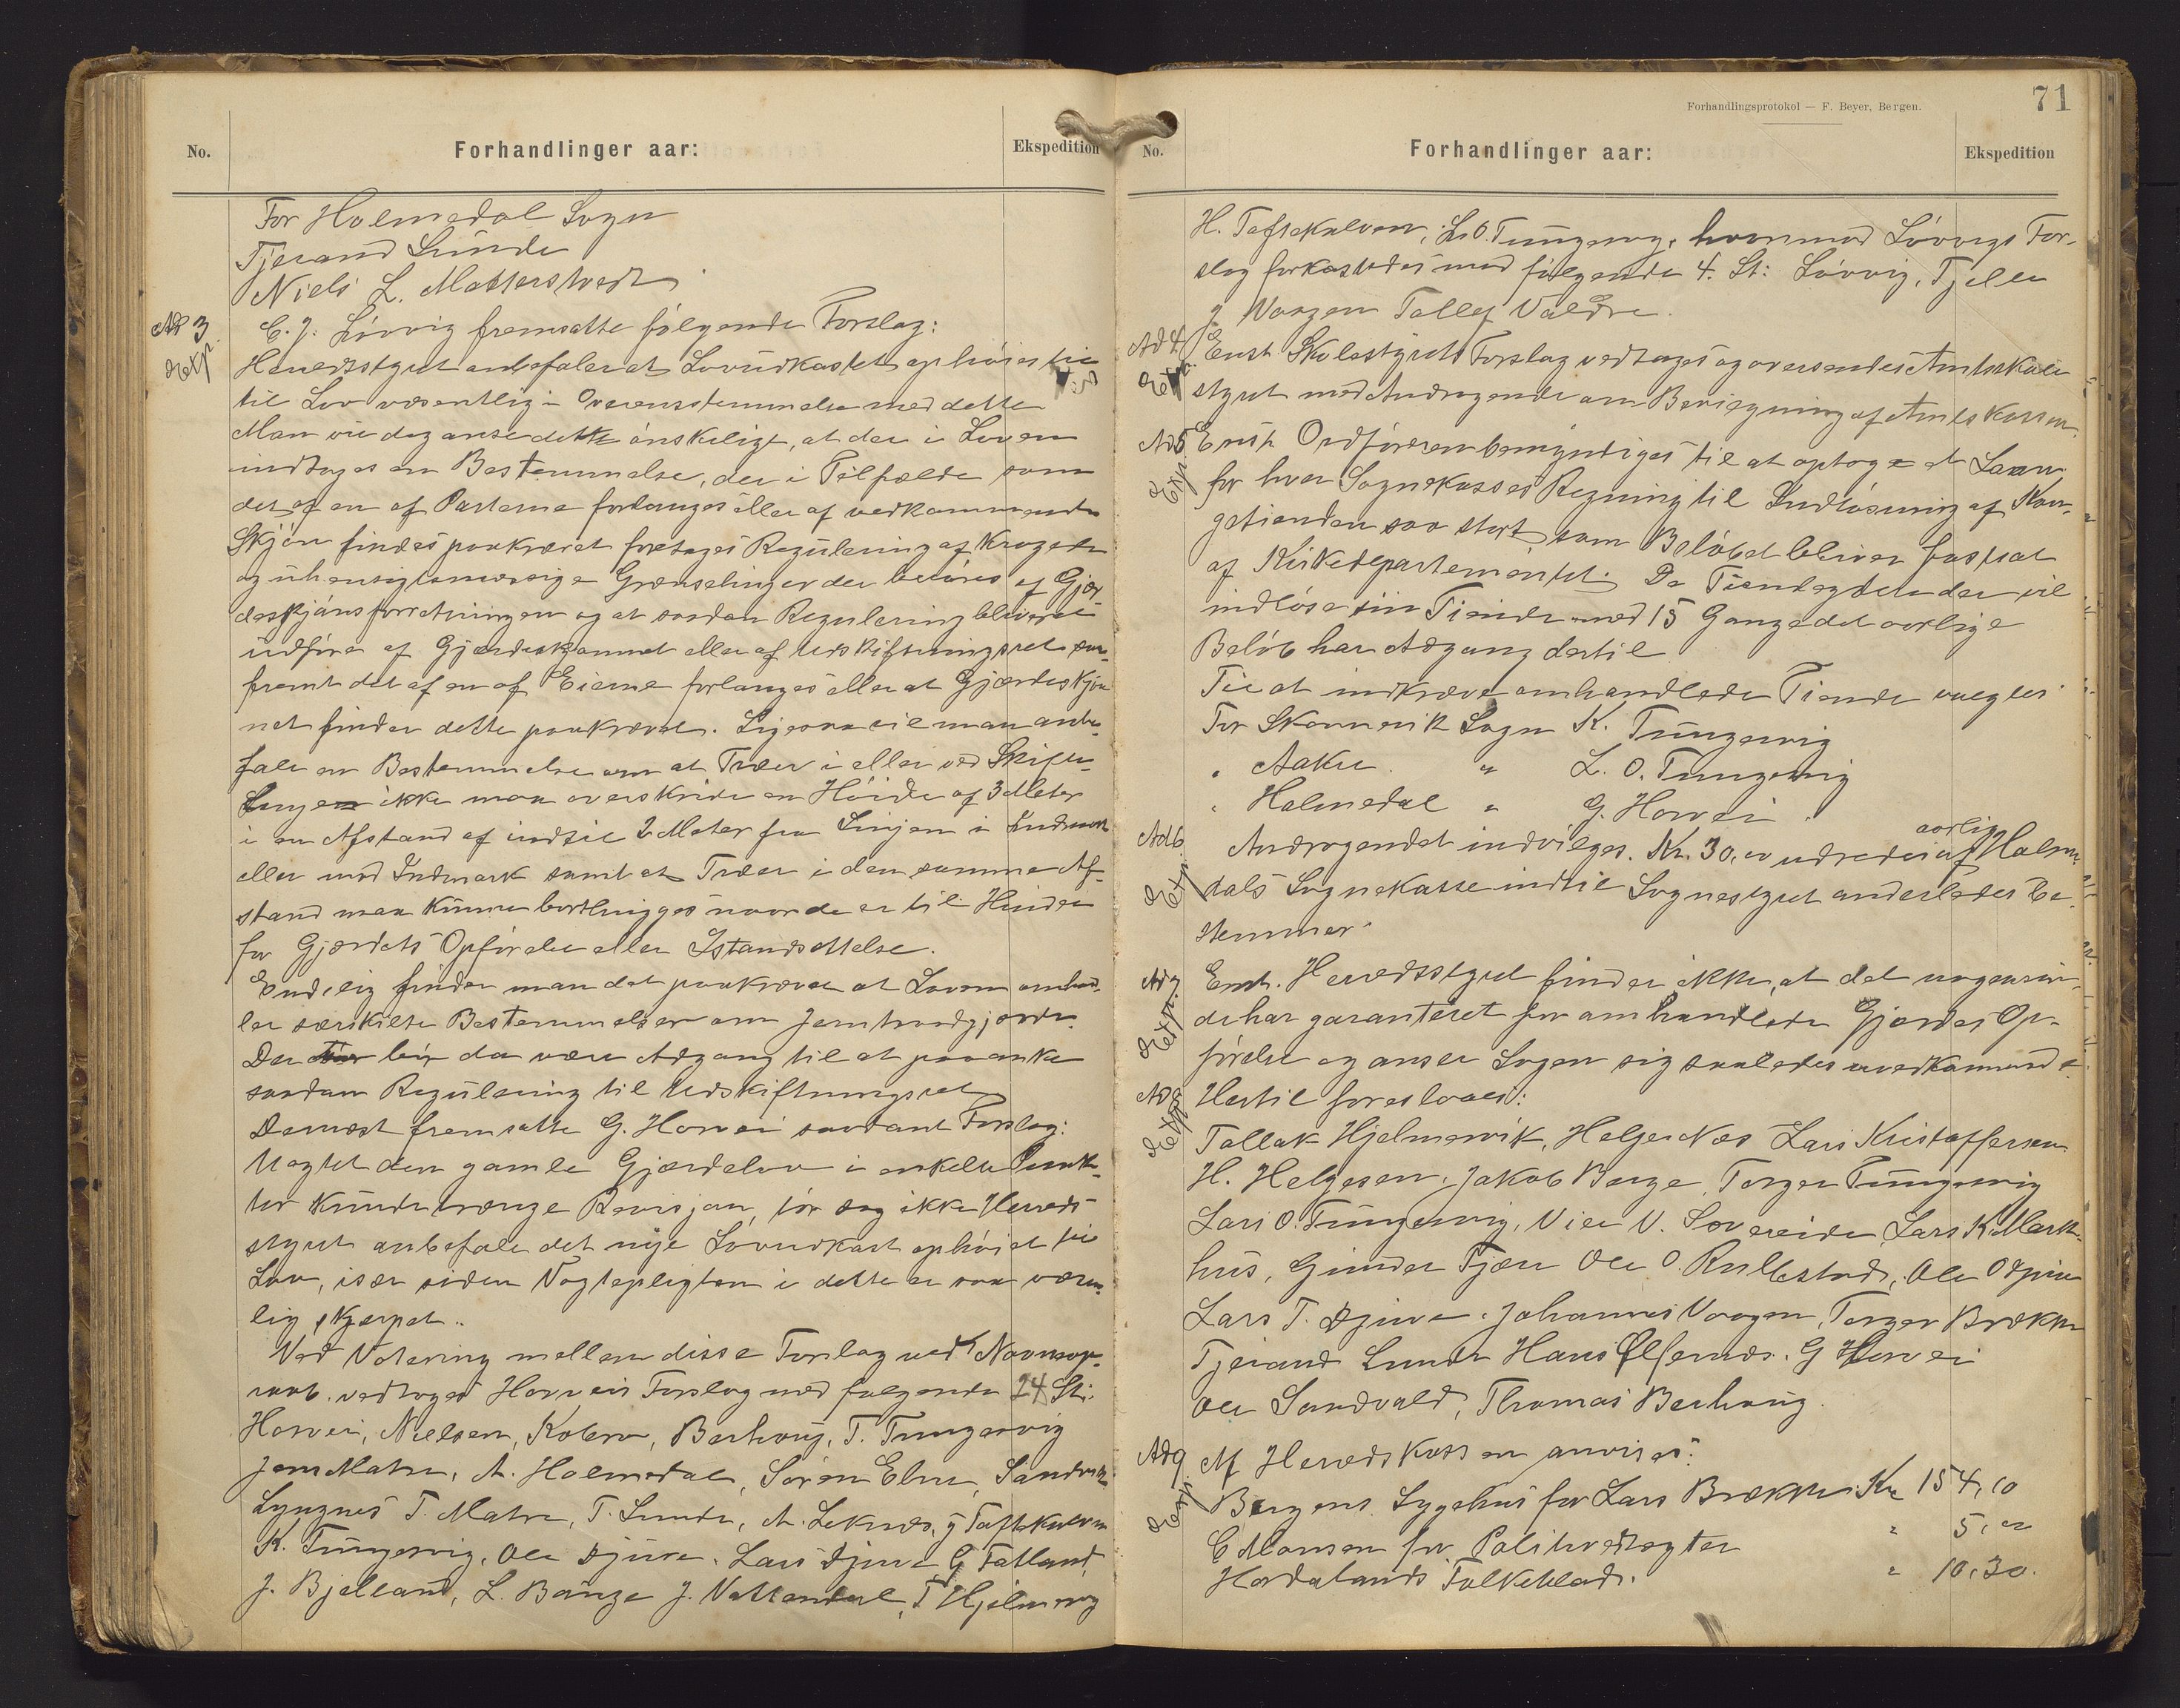 No.
Forhandlinger aar:
Ekspedition
For Holmedal Sogn
Tjerand Lunde
Niels L. Matterstvedt
Ad 3
Exp.
E. J. Løvvig fremsatte følgende Forslag:
Herredsstyret anbefaler at Lovudkastet ophøies
til Lov væsentlig i Overensstemmelse med dette
Man vil dog anse dette ønskeligt, at der i Loven
indtages en Bestemmelse, der i Tilfælde som
det af en af Parterne forlanges eller af vedkommende
Skjøn findes paakrævet foretages Regulering af krogede
og uhensigtsmæssige Grænselinjer der berøres af Gjær-
desskjønsforretningen og at saadan Regulering bliver at
udføre af Gjærdeskjønnet eller af Udskiftningsret saa-
fremt det af en af Eierne forlanges eller at Gjærdeskjøn
net finder dette paakrævet. Ligesaa vil man anbe-
fale en Bestemmelse om at Træer i eller ved Skifte-
linjen ikke maa overskride en Høide af 3 Meter
i en Afstand af indtil 2 Meter fra Linjen i Indmark
eller mod Indmark samt at Træer i den samme Af-
stand maa kunne borthugges naar de er til Hinder
for Gjærdets Opførelse eller Istandsettelse.
Endelig finder man det paakrævet at Loven omhand-
ler særskilte Bestemmelser om Jerntraadgjærde.
Der bør da være Adgang til at paaanke
saadan Regulering til Udskiftningsret
Dernæst fremsatte G. Horvei saadant Forslag:
Uagtet den gamle Gjærdelov i enkelte Punk-
ter kunde trænge Revisjon, tør dog ikke Herreds-
styret anbefale det nye Lovudkast ophøiet til
Lov, især siden Vogtepligten i dette er saa væsen-
lig skjærpet.
Ved Votering mellem disse Forslag ved Navneop-
raab vedtoges Horveis Forslag med følgende 24 St:
Horvei, Nielsen, Koløen, Berhoug, T. Tungesvig
Jens Matre, A. Holmedal, Søren Ebne, Sandvik
Lyngnes T. Matre, T. Lunde, A. Leknes, J Toftekalven
K. Tungesvig, Ole Djuve, Lars Djuve G Fatland,
J. Bjelland, L. Bauge J. Vattendal, T Hjelmevig
Forhandlingsprotokol — F. Beyer, Bergen.
71
No.
Forhandlinger aar:
Ekspedition
H. Toftekalven, L. O. Tungesvig, hvormod Løvvigs For-
slag forkastedes med følgende 4. St: Løvvig, Fjelle
J Vaagen Tollef Valdre.
Ad 4
Exp.
Enst Skolestyrets Forslag vedtages og oversendes Amtsskole
styret med Andragende om Bevilgning af Amtskassen.
Ad 5
Exp.
Enst Ordføreren bemyndiges til at optage et Laan
for hver Sognekasses Regning til Indløsning af Kon-
getienden saa stort som Beløbet bliver fastsat
af Kirkedepartementet. De Tiendeydere der vil
indløse sin Tiende med 15 Gange det aarlige
Beløb har Adgang dertil
Til at indkræve omhandlede Tiende valgtes
For Skaanevik Sogn K. Tungesvig
" Aakre " L. O. Tungesvig
" Holmedal " G. Horvei.
Ad 6
Exp.
Andragendet indvilges. Kr. 30,00 udredes aarlig af Holme-
dals Sognekasse indtil Sognestyret anderledes be-
stemmer.
Ad 7
Exp.
Enst. Herredsstyret finder ikke, at det nogensin-
de har garanteret for omhandlede Gjærdes Op-
førelse og anser Sagen sig saaledes uvedkommende.
Ad 8
Exp.
Hertil foreslaaes:
Tollak Hjelmevik, Helge Næs Lars Kristoffersen
H. Helgesen, Jakob Berge, Torger Tungesvig
Lars O. Tungesvig, Nils N. Sævereide, Lars K. Mark-
hus, Gunder Tjæn Ole O. Rullestad, Ole Djuve
Lars T. Djuve, Johannes Vaagen, Torger Brække
Tjerand Lunde Hans Ølfernæs. G Horvei
Ole Sandvald, Thomas Berhoug.
Ad 9
Exp.
Af Herredskassen anvises:
Bergens Sygehus for Lars Brække Kr 154,10
E Monsen for Politivedtægter " 5,00
Hordalands Folkeblad. " 10,30.